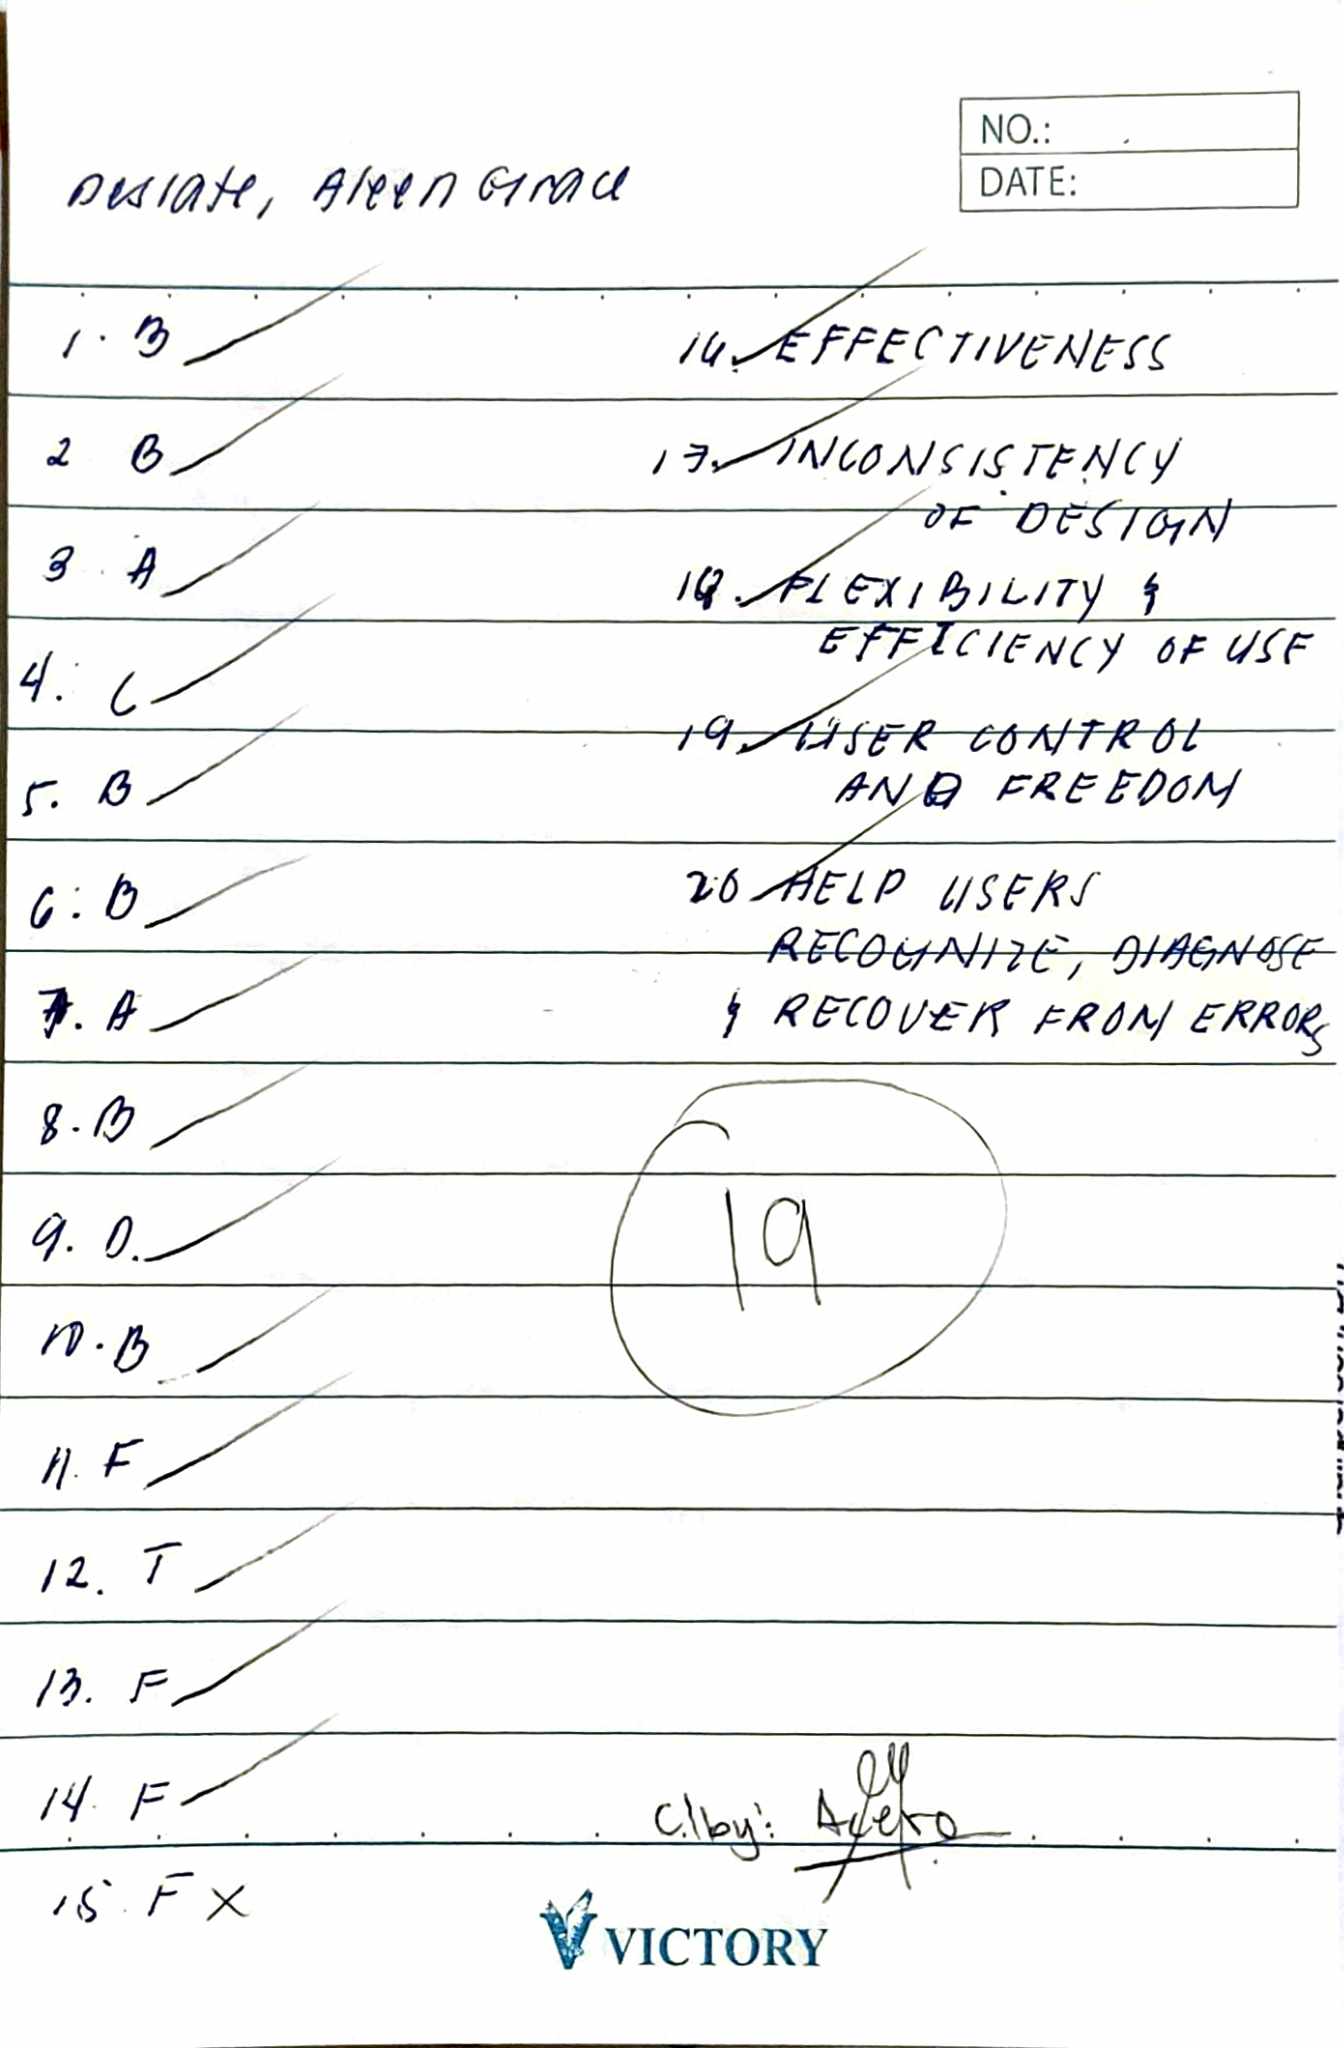 NO.:
DATE:
Deslate, Aleen Grace
1. B
2 B
3. A
4. C
5. B
6. B
7. A
8. B
9. D.
10. B
11. F
12. T
13. F
14. F
15. F X
16. EFFECTIVENESS
17. INCONSISTENCY
OF DESIGN
18. FLEXIBILITY &
EFFICIENCY OF USE
19. USER CONTROL
AND FREEDOM
20 HELP USERS
RECOGNIZE, DIAGNOSE
& RECOVER FROM ERRORS
19
C.by: Acero
VICTORY